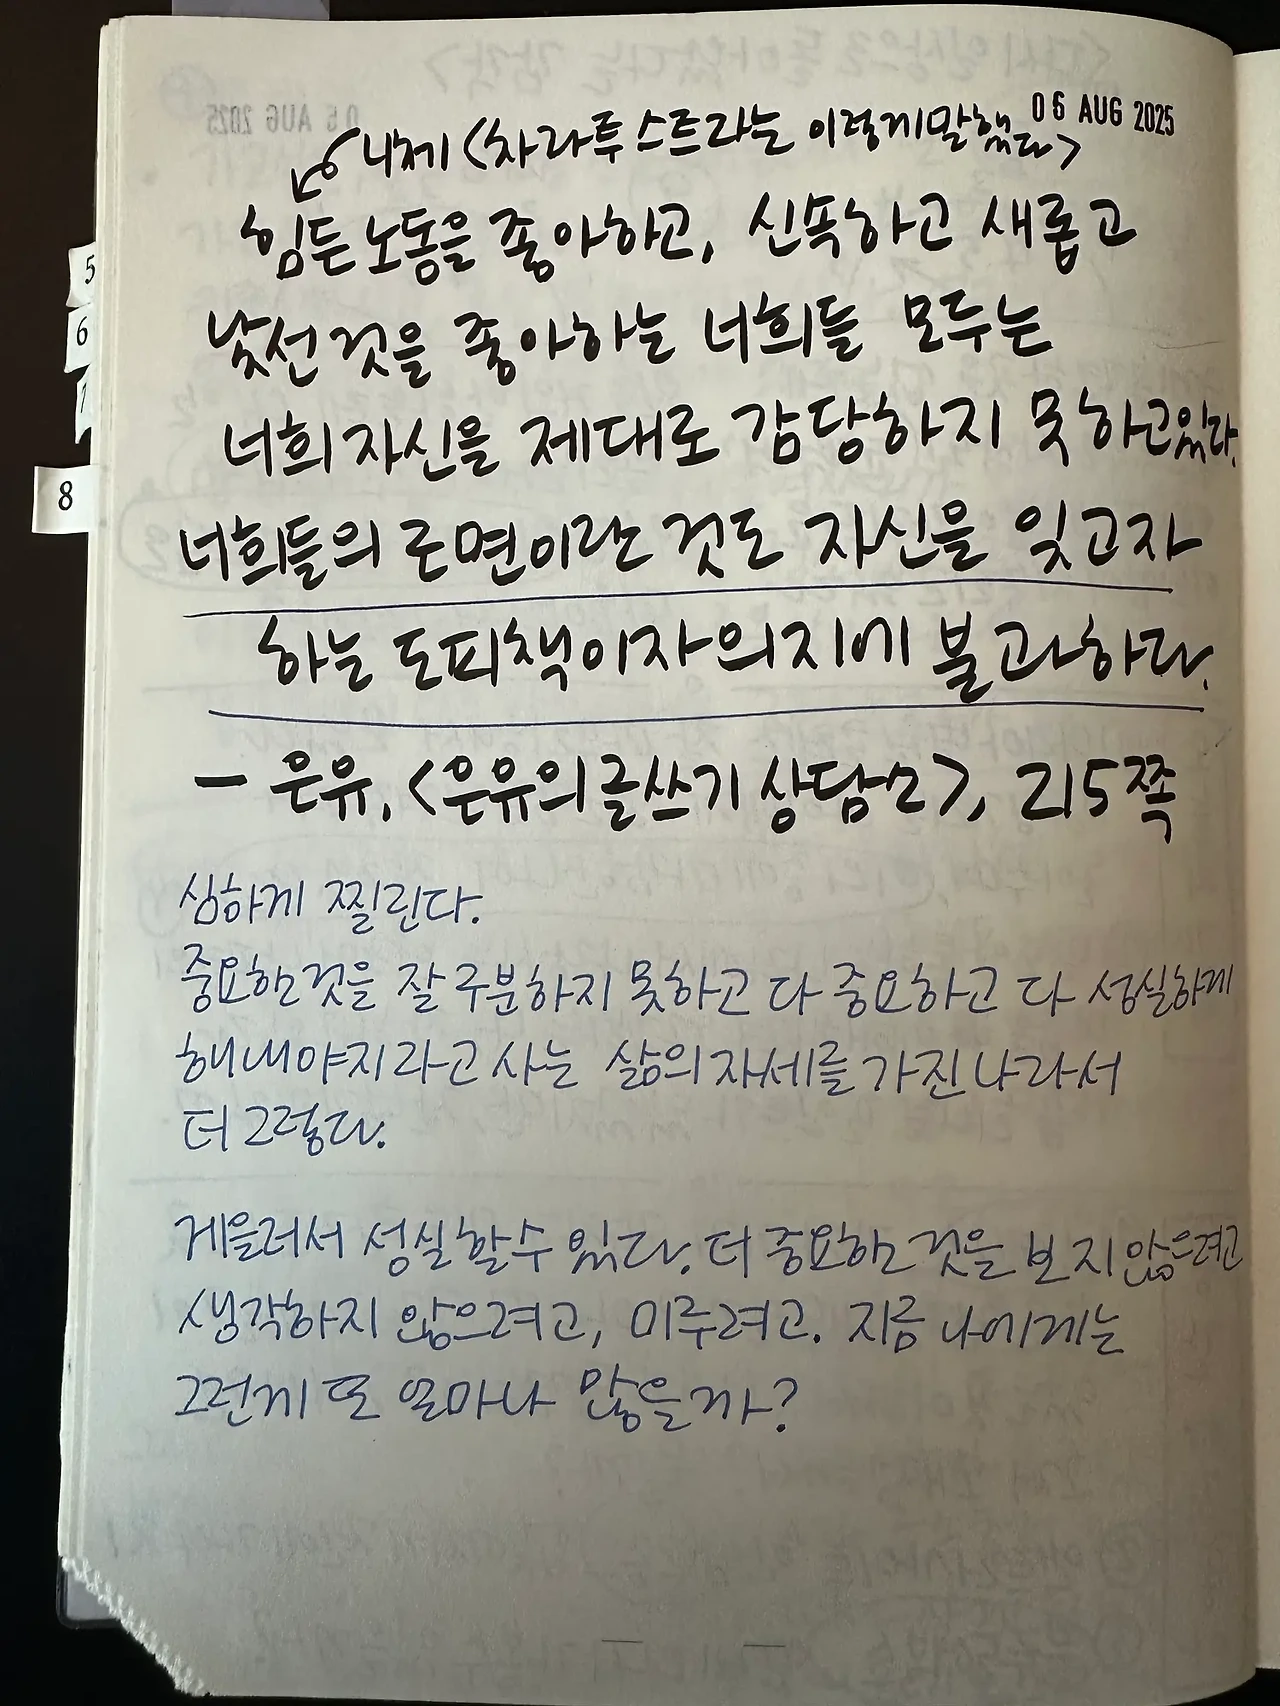 06 AUG 2025
니체 <차라투스트라는 이렇게 말했다>
힘든 노동을 좋아하고, 신속하고 새롭고
낯선 것을 좋아하는 너희들 모두는
너희 자신을 제대로 감당하지 못하고 있다.
너희들의 근면이란 것도 자신을 잊고자
하는 도피책이자 의지에 불과하다.
- 은유, <은유의 글쓰기 상담소>, 215쪽
심하게 찔린다.
중요한 것을 잘 구분하지 못하고 다 중요하고 다 성실하게
해내야지라고 사는 삶의 자세를 가진 나라서
더 그렇다.
게을러서 성실할 수 있다. 더 중요한 것을 보지 않으려고
생각하지 않으려고, 미루려고. 지금 나에게는
그런게 또 얼마나 많을까?
5
6
7
8